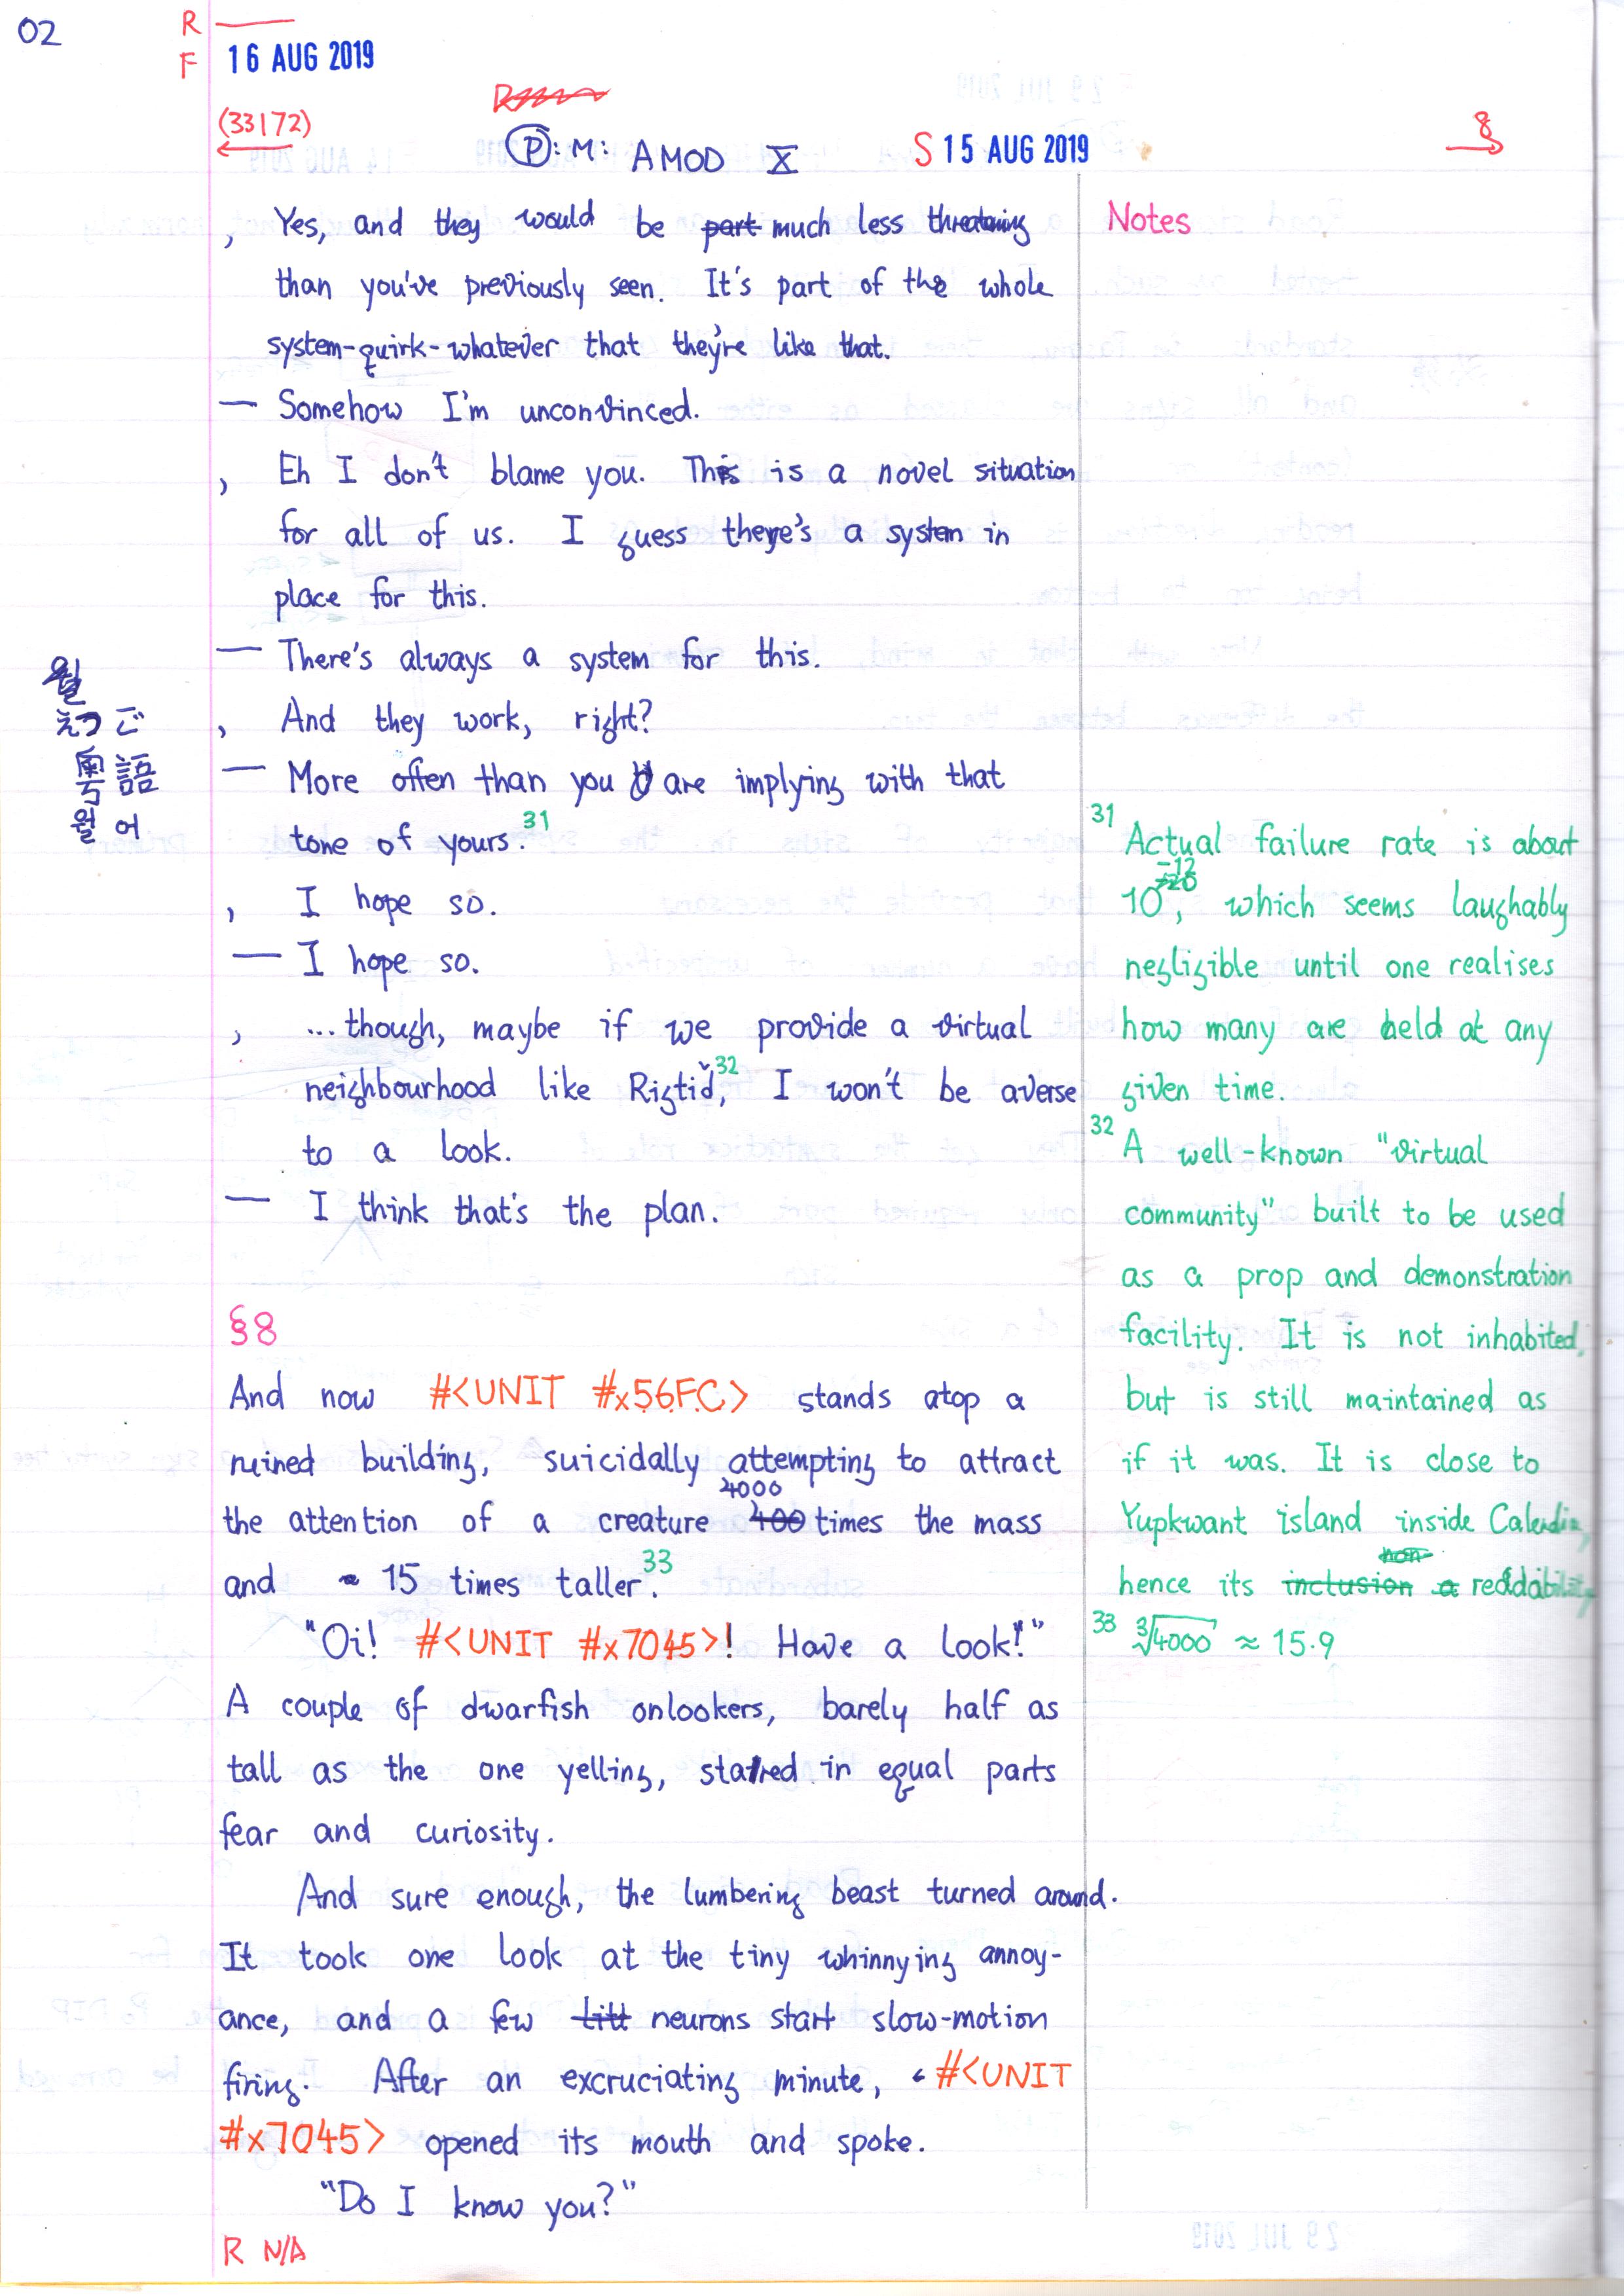 02
R
F 16 AUG 2019
(33172)
Ⓟ:M: AMOD X
S 15 AUG 2019
8
, Yes, and they would be part much less threatening
than you've previously seen. It's part of the whole
system-quirk-whatever that they're like that.
— Somehow I'm unconvinced.
, Eh I don't blame you. This is a novel situation
for all of us. I guess there's a system in
place for this.
— There's always a system for this.
, And they work, right?
— More often than you are implying with that
tone of yours.31
, I hope so.
— I hope so.
, ...though, maybe if we provide a virtual
neighbourhood like Rigtid,32 I won't be averse
to a look.
— I think that's the plan.
§8
And now #<UNIT #x56FC> stands atop a
ruined building, suicidally attempting to attract
4000
the attention of a creature 400 times the mass
and ~ 15 times taller.33
"Oi! #<UNIT #x7045>! Have a look!"
A couple of dwarfish onlookers, barely half as
tall as the one yelling, stared in equal parts
fear and curiosity.
And sure enough, the lumbering beast turned around.
It took one look at the tiny whinnying annoy-
ance, and a few titt neurons start slow-motion
firing. After an excruciating minute, #<UNIT
#x7045> opened its mouth and spoke.
"Do I know you?"
R N/A
월
えつご
粤語
월어
Notes
31 Actual failure rate is about
10-12, which seems laughably
negligible until one realises
how many are held at any
given time.
32 A well-known "virtual
community" built to be used
as a prop and demonstration
facility. It is not inhabited,
but is still maintained as
if it was. It is close to
Yupkwant island inside
non
hence its inclusion
33 ∛4000 ≈ 15.9